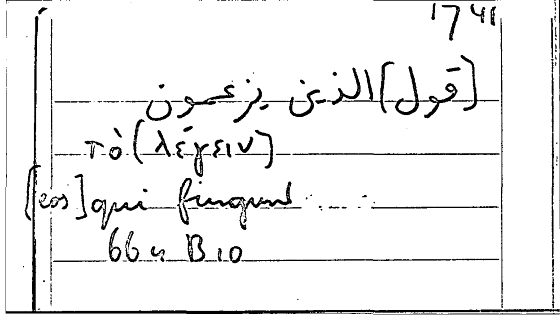 1741
[قول] الذين يزعمون
τὸ (λέγειν)
[eos] qui fingunt ....
66 u B 10